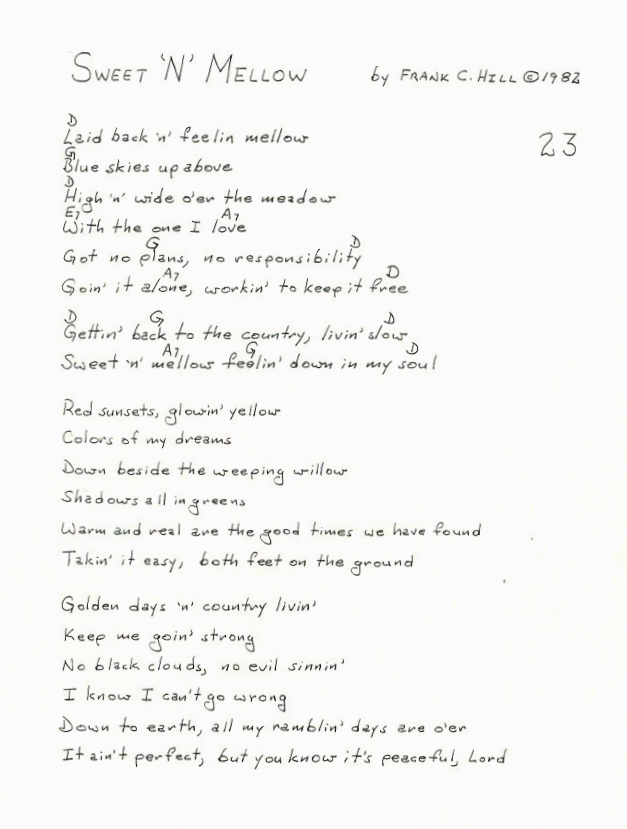 SWEET 'N' MELLOW by FRANK C. HILL ©1982
23
D
Laid back 'n' feelin mellow
G
Blue skies up above
D
High 'n' wide o'er the meadow
E7 A7
With the one I love
G D
Got no plans, no responsibility
A7 D
Goin' it alone, workin' to keep it free
D G D
Gettin' back to the country, livin' slow
A7 G D
Sweet 'n' mellow feelin' down in my soul
Red sunsets, glowin' yellow
Colors of my dreams
Down beside the weeping willow
Shadows all in greens
Warm and real are the good times we have found
Takin' it easy, both feet on the ground
Golden days 'n' country livin'
Keep me goin' strong
No black clouds, no evil sinnin'
I know I can't go wrong
Down to earth, all my ramblin' days are o'er
It ain't perfect, but you know it's peaceful, Lord